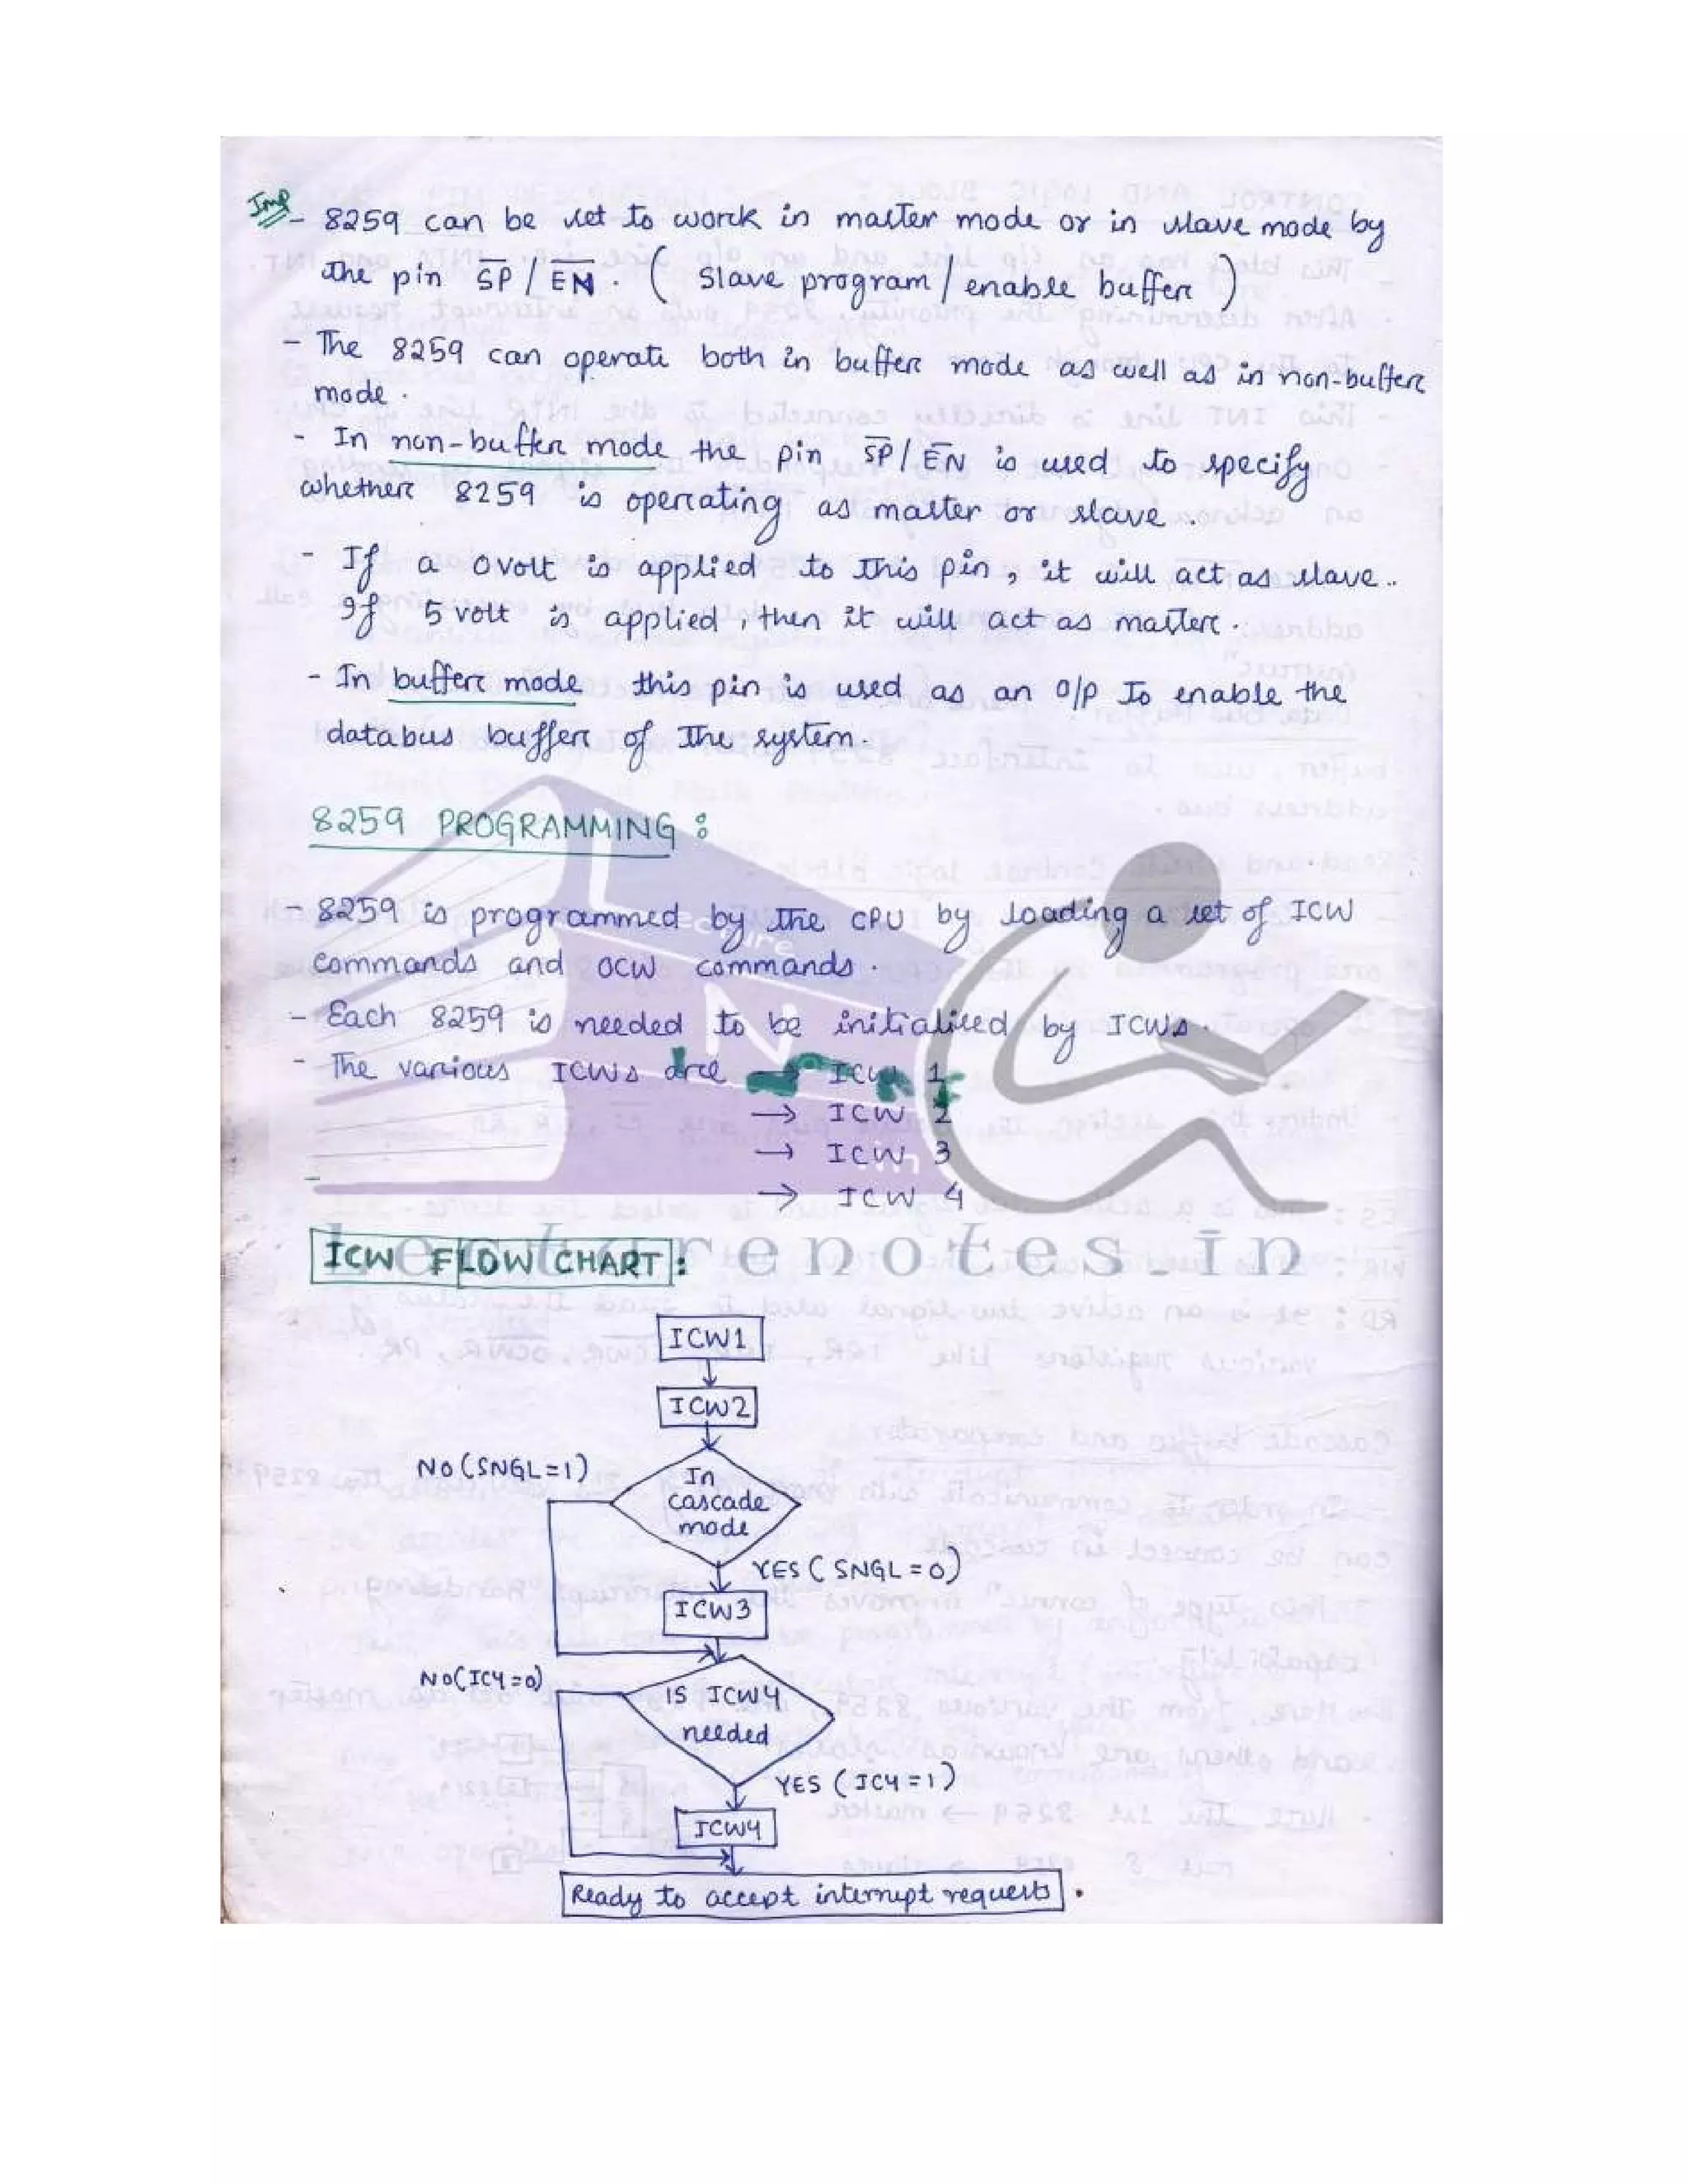 Imp - 8259 can be set to work in master mode or in slave mode by
the pin S̅P̅ / E̅N̅ . ( Slave program / enable buffer )
- The 8259 can operate both in buffer mode as well as in non-buffer
mode .
- In non-buffer mode the pin S̅P̅ / E̅N̅ is used to specify
whether 8259 is operating as master or slave .
- If a 0 volt is applied to this pin , it will act as slave ..
If 5 volt is applied , then it will act as master .
- In buffer mode this pin is used as an o/p To enable the
databus buffer of The system .
8259 PROGRAMMING :
- 8259 is programmed by the CPU by loading a set of ICW
commands and OCW commands .
- Each 8259 is needed to be initialised by ICWs .
- The various ICWs are → ICW 1
→ ICW 2
→ ICW 3
→ ICW 4
ICW FLOW CHART :
ICW1
ICW2
NO (SNGL=1)
In
cascade
mode
YES ( SNGL = 0)
ICW3
NO(IC4=0)
IS ICW4
needed
YES ( IC4 = 1 )
ICW4
Ready to accept interrupt requests .
Lecture
N
.in
Lecturenotes.in